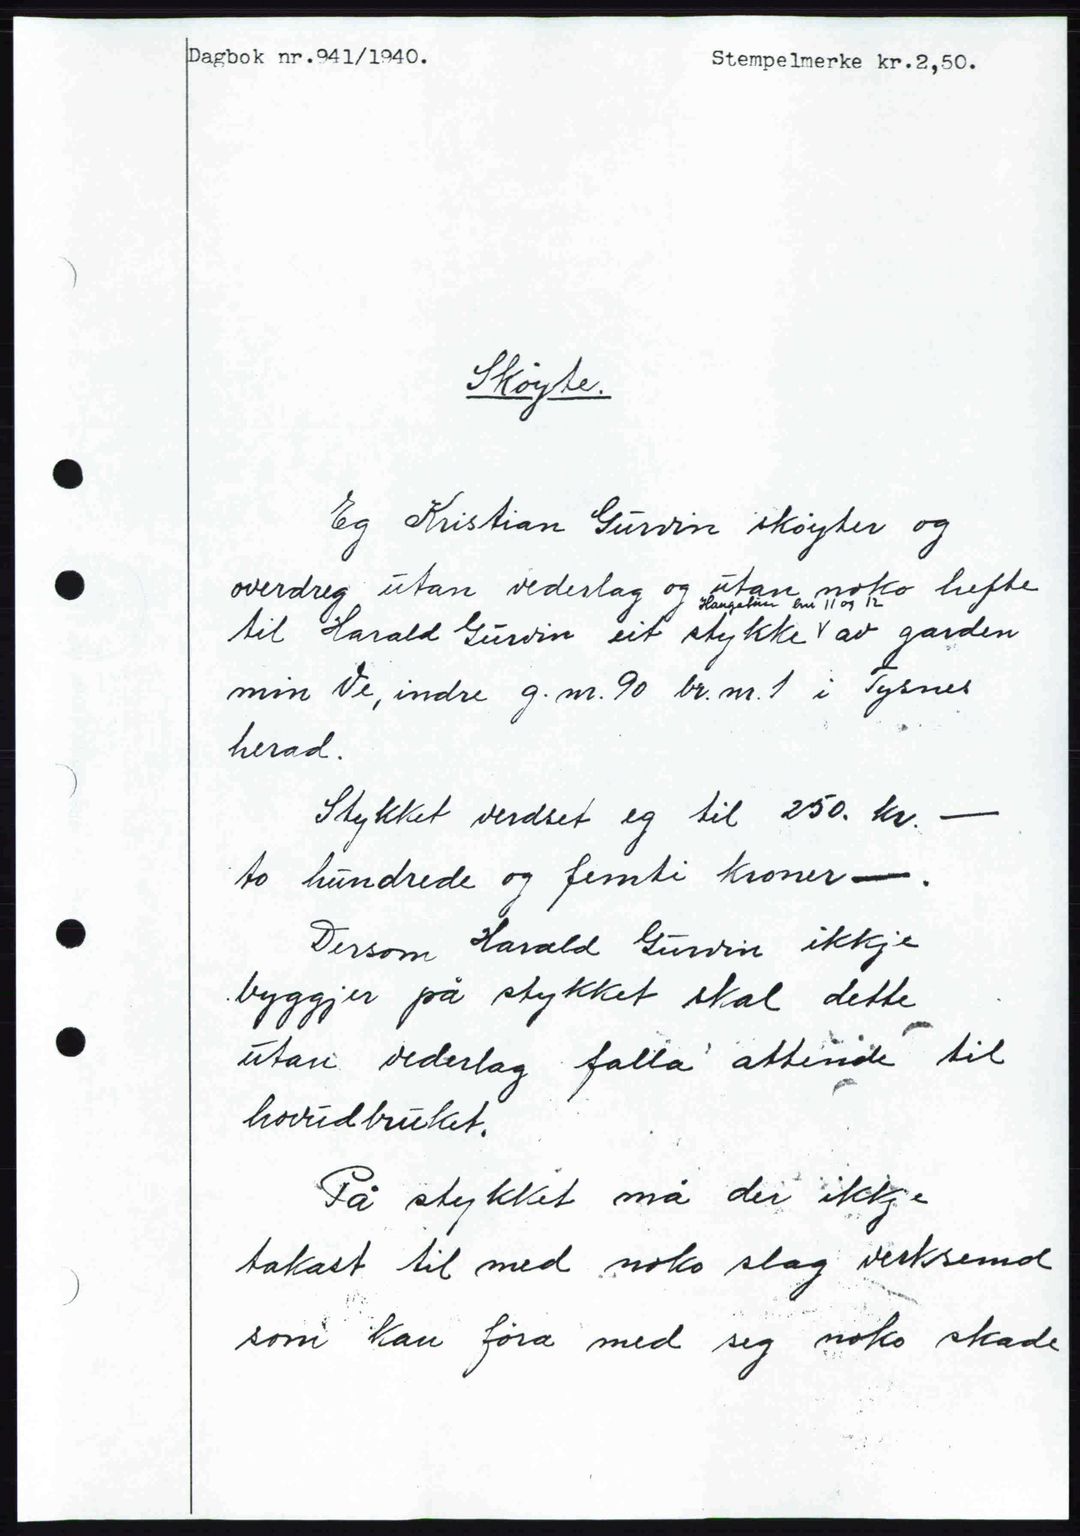 Dagbok nr.941/1940.
Stempelmerke kr.2,50.
Skøyte.
Eg Kristian Gurvin skøyter og
overdreg utan vederlag og utan noko hefte
bnr 11 og 12
til Harald Gurvin eit stykke av garden
min Ve, indre g. nr. 90 br. nr. 1 i Tysnes
herad.
Stykket verdset eg til 250. kr. —
to hundrede og femti kroner —.
Dersom Harald Gurvin ikkje
byggjer på stykket skal dette
utan vederlag falla attende til
hovudbruket.
På stykket må der ikkje
takast til med noko slag verksemd
som kan föra med seg noko skade